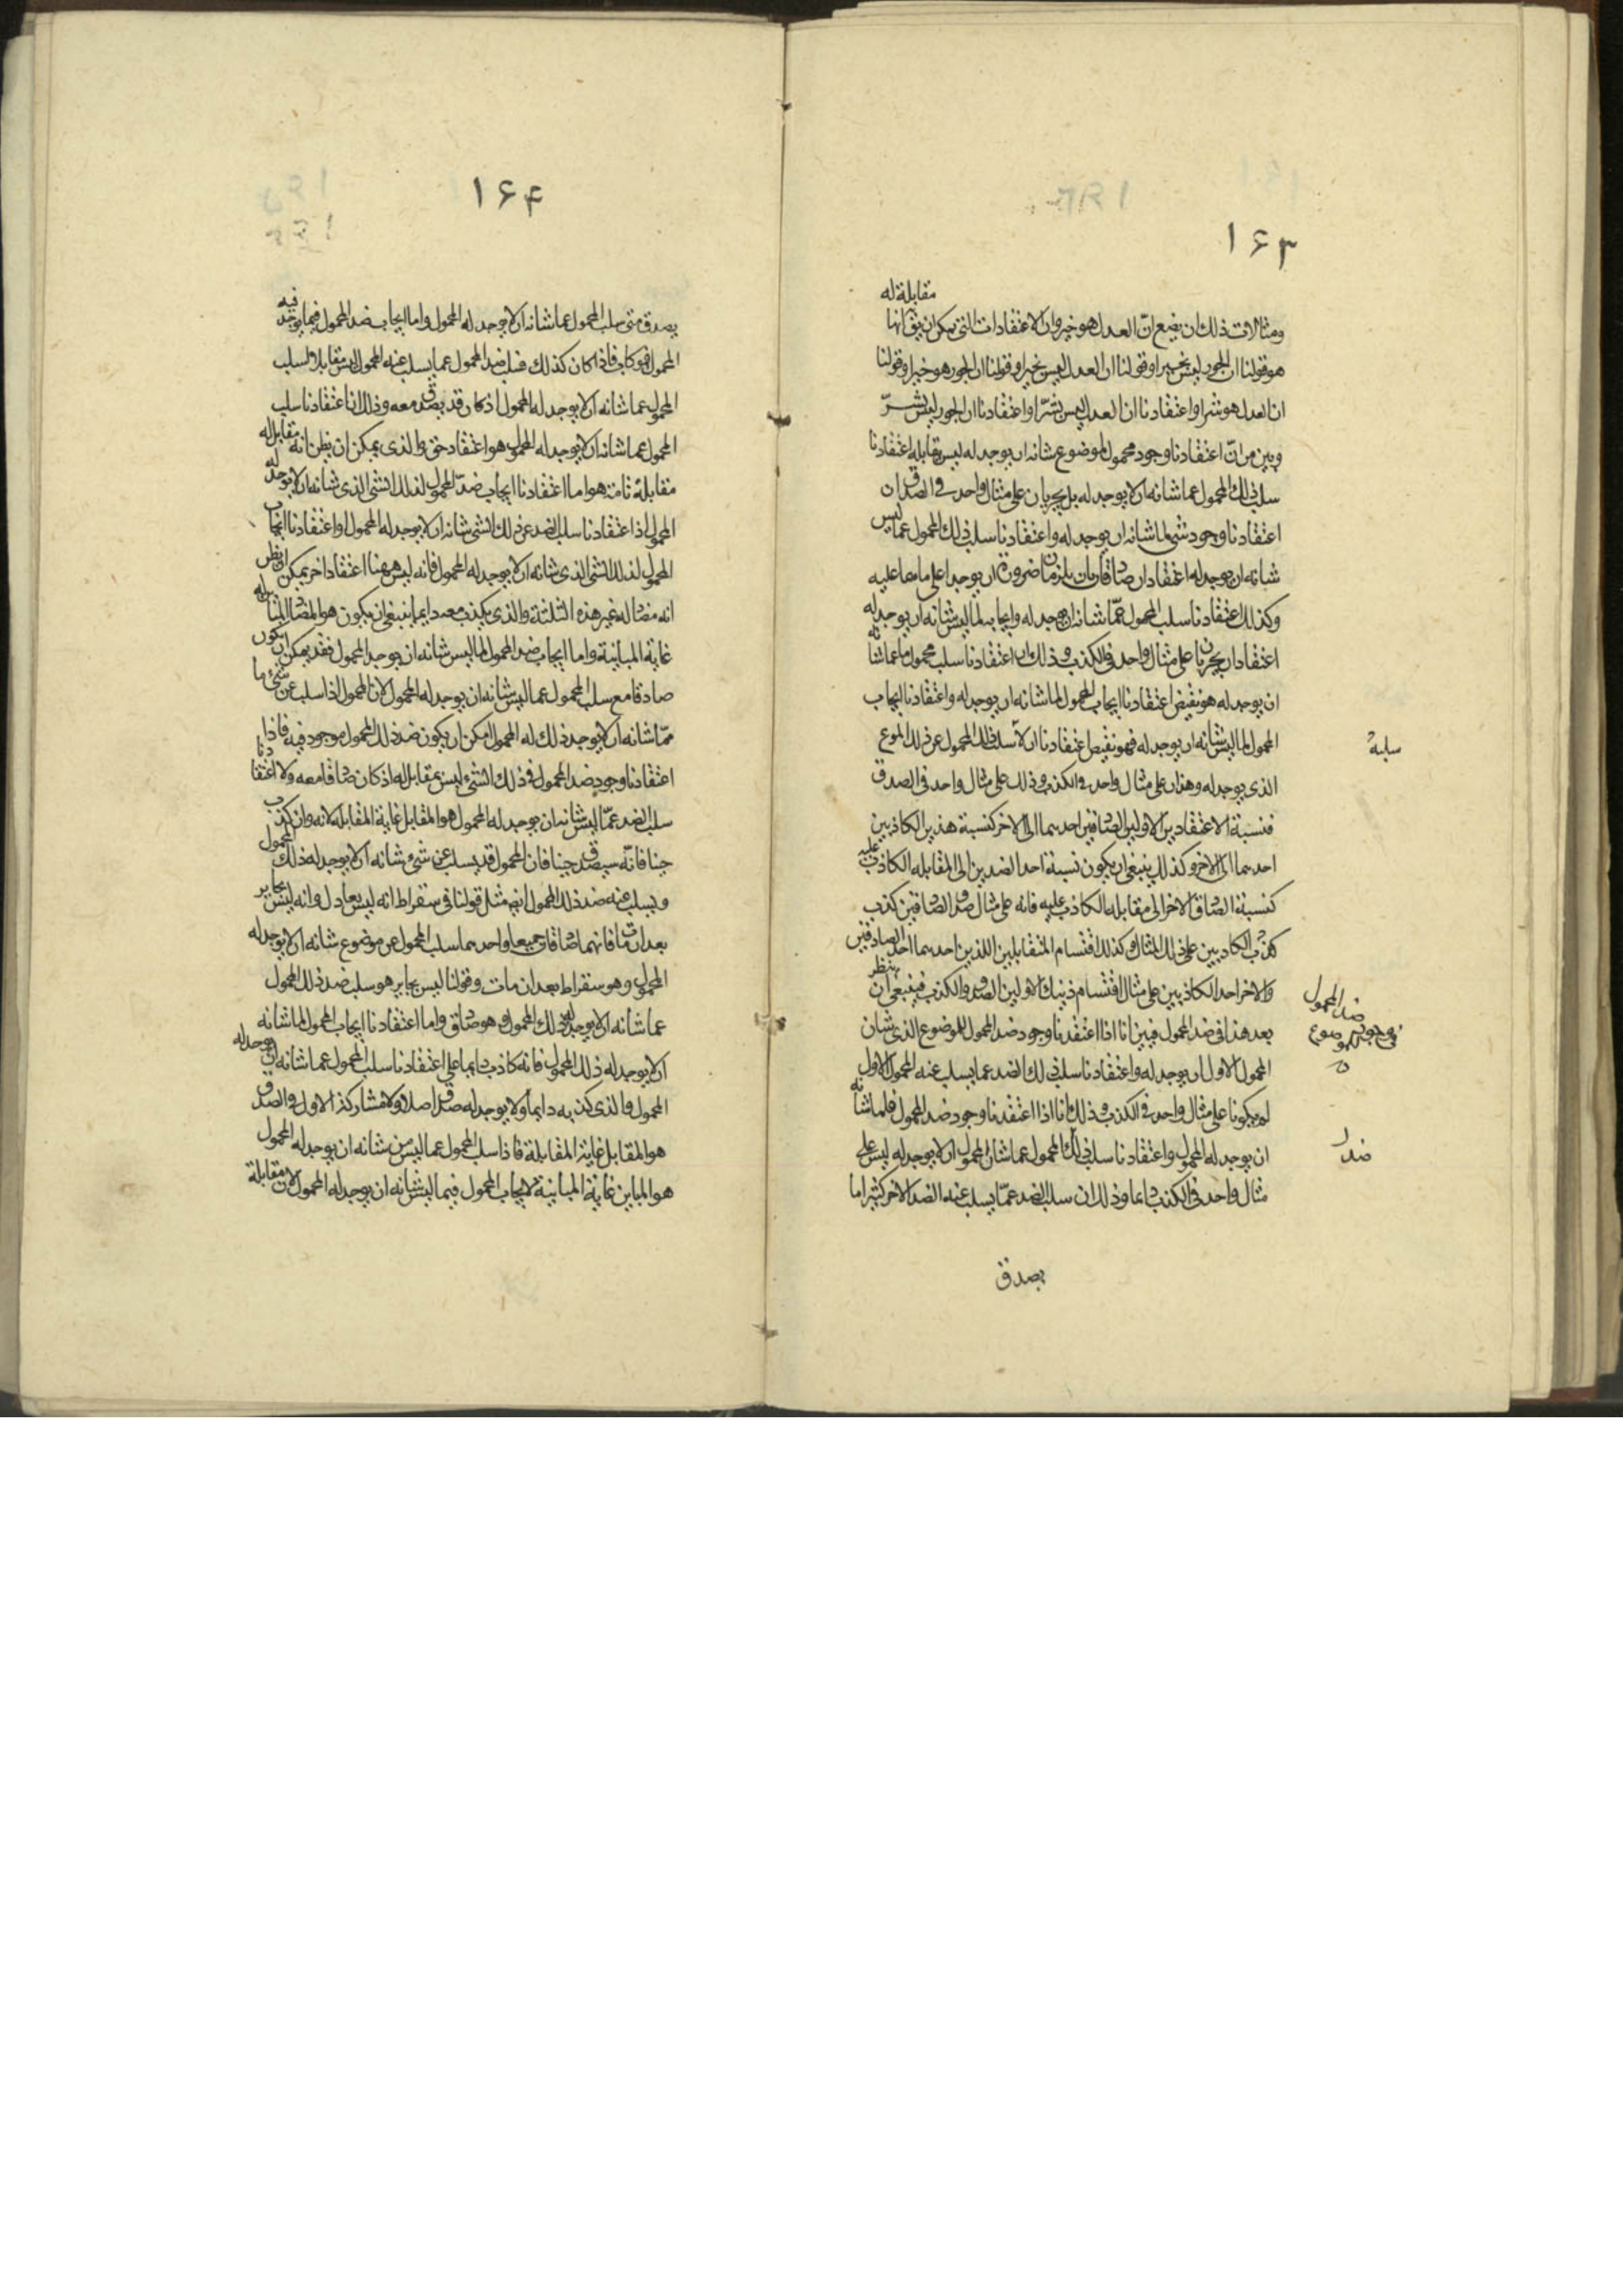 ١٦٣
مقابلة له
ومثالات ذلك ان يضع انّ العدل هو خير وان الاعتقادات التى يمكن ان يقع انها
هو قولنا ان الجور ليس بخير او قولنا ان العدل ليس بخير او قولنا ان الجور هو خير او قولنا
ان العدل هو شر او اعتقادنا ان العدل ليس بشرّ او اعتقادنا ان الجور ليس بشرّ
وبين من انّ اعتقادنا وجود محمول لموضوع شانه ان يوجد له ليس يقابله اعتقادنا
سلب ذلك المحمول عما شانه ان لا يوجد له بل يجريان على مثال واحد فى الصدق ان
اعتقادنا وجود شى لما شانه ان يوجد له واعتقادنا سلب ذلك المحمول عما ليس
شانه ان يوجد له اعتقادان صادقان يلزمان ضرورة ان يوجدا على ما هما عليه
وكذلك اعتقادنا سلب المحمول عمّا شانه ان يوجد له وايجابه لما ليس شانه ان يوجد له
اعتقادان يجريان على مثال واحد فى الكذب وذلك ان اعتقادنا سلب محمول ما عما شانه
ان يوجد له هو نقيض اعتقادنا ايجاب المحمول لما شانه ان يوجد له واعتقادنا ايجاب
المحمول لما ليس شانه ان يوجد له فهو نقيض اعتقادنا ان لا سلب ذلك المحمول عن ذلك الموضوع
سلبه
الذى يوجد له وهذان على مثال واحد فى الكذب وذلك على مثال واحد فى الصدق
فنسبة الاعتقادين الاولين الصادقين احدهما الى الاخر كنسبة هذين الكاذبين
احدهما الى الاخر وكذلك ينبغى ان يكون نسبة احد الضدين الى المقابله الكاذب عليه
كنسبة الصادق الاخر الى مقابله الكاذب عليه فانه على مثال صدق الصادقين كذب
كذب الكاذبين على ذلك المثال وكذلك اقتسام المتقابلين اللذين احدهما احد الصادقين
والاخر احد الكاذبين على مثال اقتسام ذينك الاولين الصدق والكذب فينبغى ان ينظر
ضد المحمول
بعد هذا فى ضد المحمول فبين انا اذا اعتقدنا وجود ضد المحمول للموضوع الذى شان
المحمول الاول ان يوجد له واعتقادنا سلب ذلك الضد عما يسلب عنه المحمول الاول
لم يكونا على مثال واحد فى الكذب وذلك انا اذا اعتقدنا وجود ضد المحمول فلما شانه
ان يوجد له المحمول واعتقادنا سلب ذلك المحمول عما شان المحمول ان لا يوجد له ليس على
ضدا
مثال واحد فى الكذب دايما وذلك ان سلب الضد عمّا يسلب عنه الضد الاخر كثيرا ما
يصدق
١٦۴
يصدق متى سلب المحمول عما شانه ان لا يوجد له المحمول واما ايجاب ضد المحمول فيما يوجد فيه
المحمول فهو كاذب فاذا كان كذلك فسلب ضد المحمول عما يسلب عنه المحمول ليس مقابلا لسلب
المحمول عما شانه ان لا يوجد له المحمول اذ كان قد يصدق معه وذلك انا اعتقادنا سلب
المحمول عما شانه ان لا يوجد له المحمول هو اعتقاد حق والذى يمكن ان يظن انه مقابل له
مقابلة تامة هو اما اعتقادنا ايجاب ضدّ المحمول لذلك الشى الذى شانه ان لا يوجد له
المحمول اذ اعتقادنا سلب الضد عن ذلك الشى شانه ان لا يوجد له المحمول او اعتقادنا ايجاب
المحمول لذلك الشى الذى شانه ان لا يوجد له المحمول فانه ليس ههنا اعتقاد اخر يمكن ان يظن
انه مضاد له غير هذه الثلثة والذى يكذب معه دايما ينبغى ان يكون هو المضاد المباين له
غاية المباينة واما ايجاب ضد المحمول لما ليس شانه ان يوجد المحمول فقد يمكن ان يكون
صادقا مع سلب المحمول عما ليس شانه ان يوجد له المحمول لان المحمول اذا سلب عن شى ما
ممّا شانه ان لا يوجد ذلك له المحمول امكن ان يكون ضد ذلك المحمول موجود فيه فاذا
اعتقادنا وجود ضد المحمول فى ذلك الشئ ليس بمقابل له اذ كان صادقا معه ولا اعتقادنا
سلب الضد عمّا ليس شانه ان يوجد له المحمول هو المقابل غاية المقابلة لانه وان كذب
حينا فانّه سيصدق حينا فان المحمول قد يسلب عن شئ شانه ان لا يوجد له ذلك المحمول
ويسلب عنه ضد ذلك المحمول ايضا مثل قولنا فى سقراط انه ليس بعادل وانه ليس بجاير
بعد ان مات فانهما صادقان جميعا واحدهما سلب المحمول عن موضوع شانه ان لا يوجد له
المحمول وهو سقراط بعد ان مات وقولنا ليس بجاير هو سلب ضد ذلك المحمول
عما شانه ان لا يوجد له ذلك المحمول وهو صادق واما اعتقادنا ايجاب المحمول لما شانه
ان لا يوجد له ذلك المحمول فانه كاذب دايما على اعتقادنا سلب المحمول عما شانه ان لا يوجد له
المحمول والذى كذب به دايما ولا يوجد له صدق اصلا ولا مشاركة الاول والصدق
هو المقابل غاية المقابلة فاذا سلب المحمول عما ليس من شانه ان يوجد له المحمول
هو المباين غاية المباينة لايجاب المحمول فيما ليس شانه ان يوجد له المحمول لان مقابلة